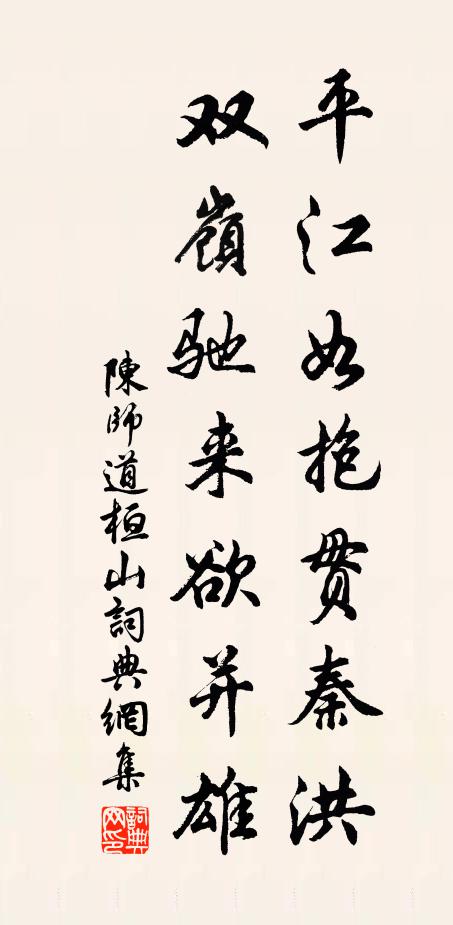 平江如抱贯秦洪
双嶺驰来欲并雄
陳師道桓山詞典網集
詞典網印